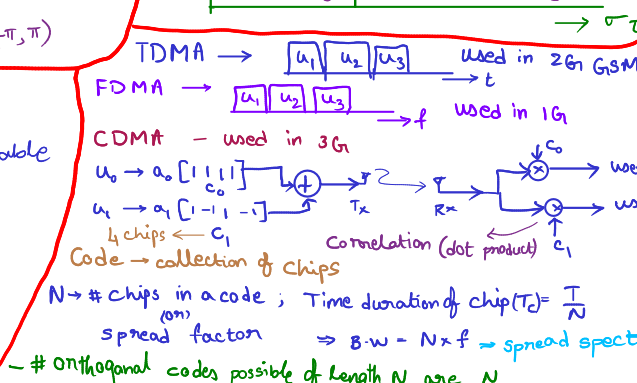 -π, π)
TDMA → u₁ u₂ u₃ → t used in 2G GSM
FDMA → u₁ u₂ u₃ → f used in 1G
CDMA - used in 3G
u₀ → a₀ [1 1 1 1] c₀ + Tx Rx × c₀
u₁ → a₁ [1 -1 1 -1] × c₁
4 chips ← c₁
Correlation (dot product)
Code → collection of chips
N → # chips in a code ; Time duration of chip (Tc) = T/N
(or)
spread factor ⇒ B.W = N × f → spread spect
- # orthoganal codes possible of length N are N